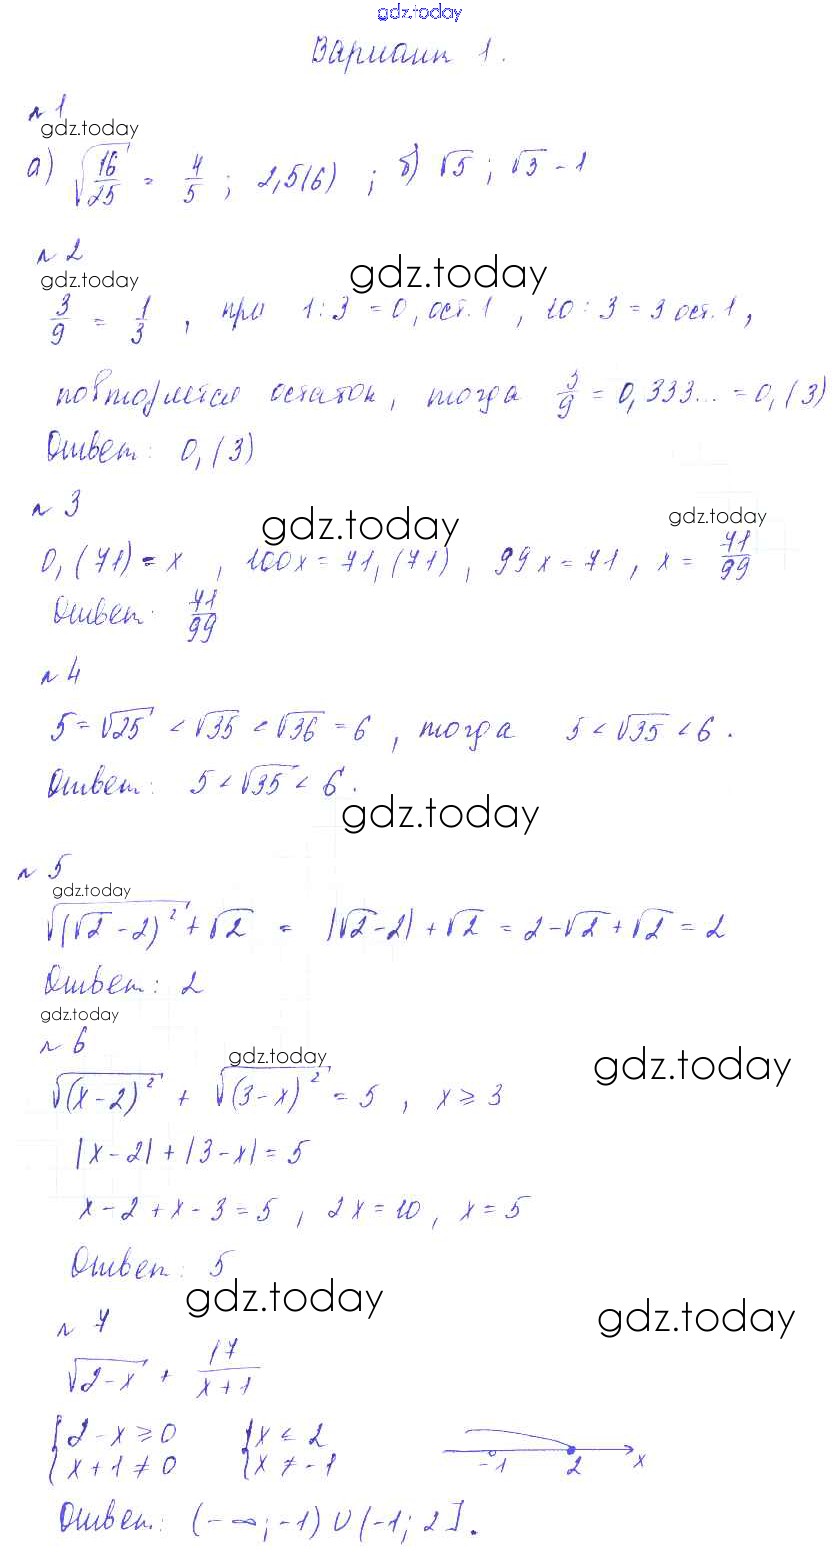 gdz.today
Вариант 1.
№ 1
gdz.today
а) √(16/25) = 4/5 ; 2,5(6) ; б) √5 ; √3 - 1
№ 2
gdz.today
gdz.today
3/9 = 1/3 , при 1 : 3 = 0, ост. 1 , 10 : 3 = 3 ост. 1 ,
повторяется остаток, тогда 3/9 = 0,333... = 0,(3)
Ответ: 0,(3)
№ 3
gdz.today
gdz.today
0,(71) = x , 100x = 71,(71) , 99x = 71 , x = 71/99
Ответ: 71/99
№ 4
5 = √25 < √35 < √36 = 6 , тогда 5 < √35 < 6 .
Ответ: 5 < √35 < 6 .
gdz.today
№ 5
gdz.today
√((√2 - 2)²) + √2 = |√2 - 2| + √2 = 2 - √2 + √2 = 2
Ответ: 2
gdz.today
№ 6
gdz.today
gdz.today
√((x - 2)²) + √((3 - x)²) = 5 , x ≥ 3
|x - 2| + |3 - x| = 5
x - 2 + x - 3 = 5 , 2x = 10 , x = 5
Ответ: 5
gdz.today
gdz.today
№ 7
√(2 - x) + 17/(x + 1)
{ 2 - x ≥ 0 { x ≤ 2
{ x + 1 ≠ 0 { x ≠ -1 -1 2 x
Ответ: (-∞; -1) ∪ (-1; 2].